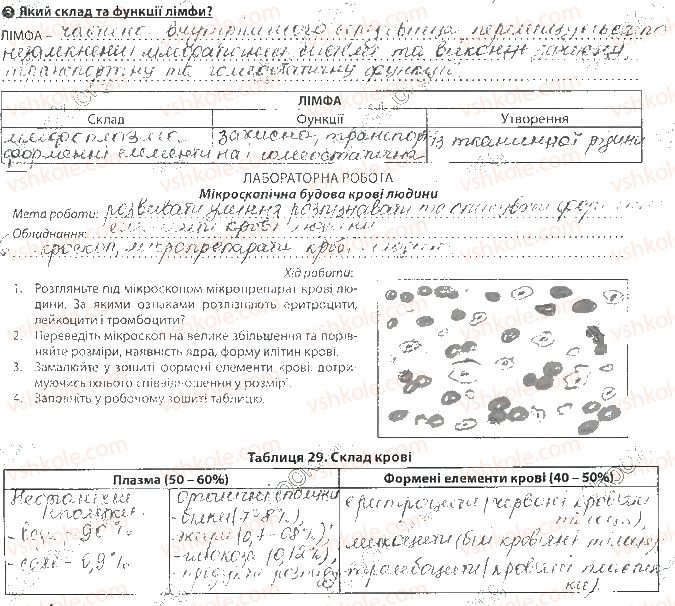 3 Який склад та функції лімфи?
ЛІМФА – частина внутрішнього середовища переміщується по
незамкненій лімфатичній системі та виконує захисну,
транспортну та гомеостатичну функції.
ЛІМФА
Склад Функції Утворення
лімфоплазма захисна, транспорт- із тканинної рідини
форменні елементи на і гомеостатична
ЛАБОРАТОРНА РОБОТА
Мікроскопічна будова крові людини
Мета роботи: розвивати уміння розпізнавати та описувати
Обладнання: елементи крові людини
мікропрепарати крові людини
Хід роботи:
1. Розгляньте під мікроскопом мікропрепарат крові лю-
дини. За якими ознаками розпізнають еритроцити,
лейкоцити і тромбоцити?
2. Переведіть мікроскоп на велике збільшення та порів-
няйте розміри, наявність ядра, форму клітин крові.
3. Замалюйте у зошиті формені елементи крові, дотри-
муючись їхнього співвідношення у розмірі.
4. Заповніть у робочому зошиті таблицю.
Таблиця 29. Склад крові
Плазма (50 – 60%) Формені елементи крові (40 – 50%)
Неорганічні сполуки:
- вода – 90%
- солі – 0,9%
Органічні сполуки
- білки (7-8%),
- жири (0,7-0,8%),
- глюкоза (0,12%),
- продукти розпаду
еритроцити (червоні кров'яні
тільця),
лейкоцити (білі кров'яні тільця),
тромбоцити (кров'яні пластин-
ки).
vshkole.com